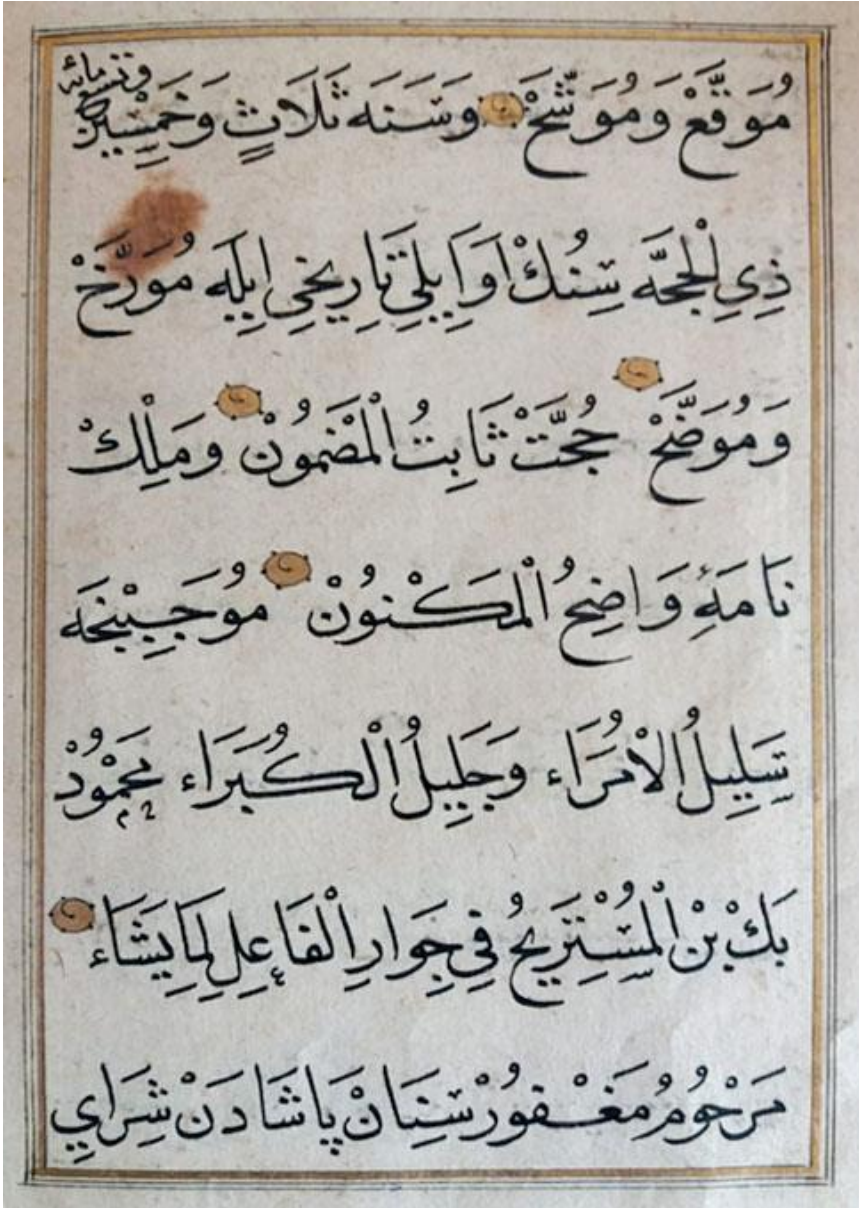 مُوَقَّعْ وَمُوَشَّحْ وَسَنَه ثَلَاثٍ وَخَمْسِينَ وتسعمائه
ذِي الْحِجَّه سِنُكْ اَوَايِلِي تَارِيخِي ايلَه مُوَرَّخْ
وَمُوَضَّحْ حُجَّتْ ثَابِتُ الْمَضْمُونْ وَمَلِكْ
نَامَهِٔ وَاضِحُ الْمَكْنُونْ مُوجَبِنْجَه
سَلِيلُ الْاُمَرَاء وَجَلِيلُ الْكُبَرَاء مَحْمُودْ
بَكْ بْنِ الْمُسْتَرِيحُ فِي جِوَارِ الْفَاعِلِ لِمَا يَشَاء
مَرْحُومُ مَغْفُورْ سِنَانْ پَاشَادَنْ شِرَاي